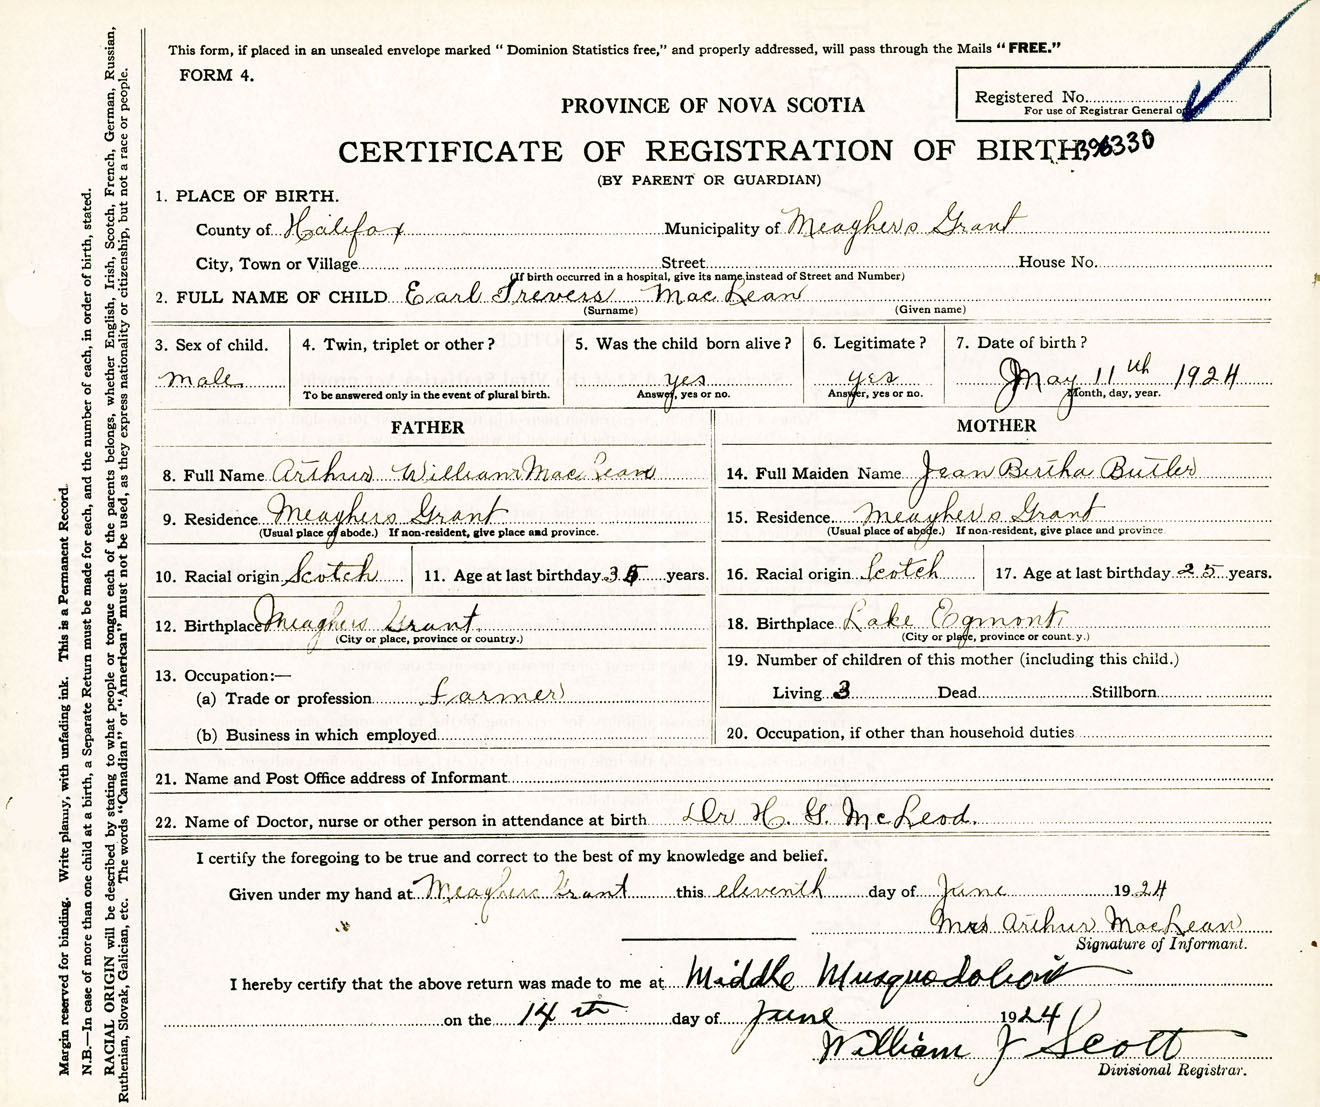 This form, if placed in an unsealed envelope marked "Dominion Statistics free," and properly addressed, will pass through the Mails "FREE."
FORM 4.
Registered No.
For use of Registrar General o
PROVINCE OF NOVA SCOTIA
CERTIFICATE OF REGISTRATION OF BIRTH
396330
(BY PARENT OR GUARDIAN)
1. PLACE OF BIRTH.
County of Halifax Municipality of Meaghers Grant
City, Town or Village Street House No.
(If birth occurred in a hospital, give its name instead of Street and Number)
2. FULL NAME OF CHILD Earl Trevers MacLean
(Surname) (Given name)
3. Sex of child. 4. Twin, triplet or other? 5. Was the child born alive? 6. Legitimate? 7. Date of birth?
male yes yes May 11th 1924
To be answered only in the event of plural birth. Answer, yes or no. Answer, yes or no. Month, day, year.
FATHER MOTHER
8. Full Name Arthur William MacLean 14. Full Maiden Name Jean Bertha Butler
9. Residence Meaghers Grant 15. Residence Meagher's Grant
(Usual place of abode.) If non-resident, give place and province. (Usual place of abode.) If non-resident, give place and province
10. Racial origin Scotch 11. Age at last birthday years. 16. Racial origin Scotch 17. Age at last birthday 25 years.
12. Birthplace Meaghers Grant 18. Birthplace Lake Egmont
(City or place, province or country.) (City or place, province or country.)
13. Occupation:— 19. Number of children of this mother (including this child.)
(a) Trade or profession farmer Living 3 Dead Stillborn
(b) Business in which employed 20. Occupation, if other than household duties
21. Name and Post Office address of Informant
22. Name of Doctor, nurse or other person in attendance at birth Dr H. G. McLeod.
I certify the foregoing to be true and correct to the best of my knowledge and belief.
Given under my hand at Meaghers Grant this eleventh day of June 1924
Mrs Arthur MacLean
Signature of Informant.
I hereby certify that the above return was made to me at Middle Musquodoboit
on the 14th day of June 1924
William J Scott
Divisional Registrar.
Margin reserved for binding. Write plainly, with unfading ink. This is a Permanent Record.
N.B.—In case of more than one child at a birth, a Separate Return must be made for each, and the number of each, in order of birth, stated.
RACIAL ORIGIN will be described by stating to what people or tongue each of the parents belongs, whether English, Irish, Scotch, French, German, Russian,
Ruthenian, Slovak, Galician, etc. The words "Canadian" or "American" must not be used, as they express nationality or citizenship, but not a race or people.